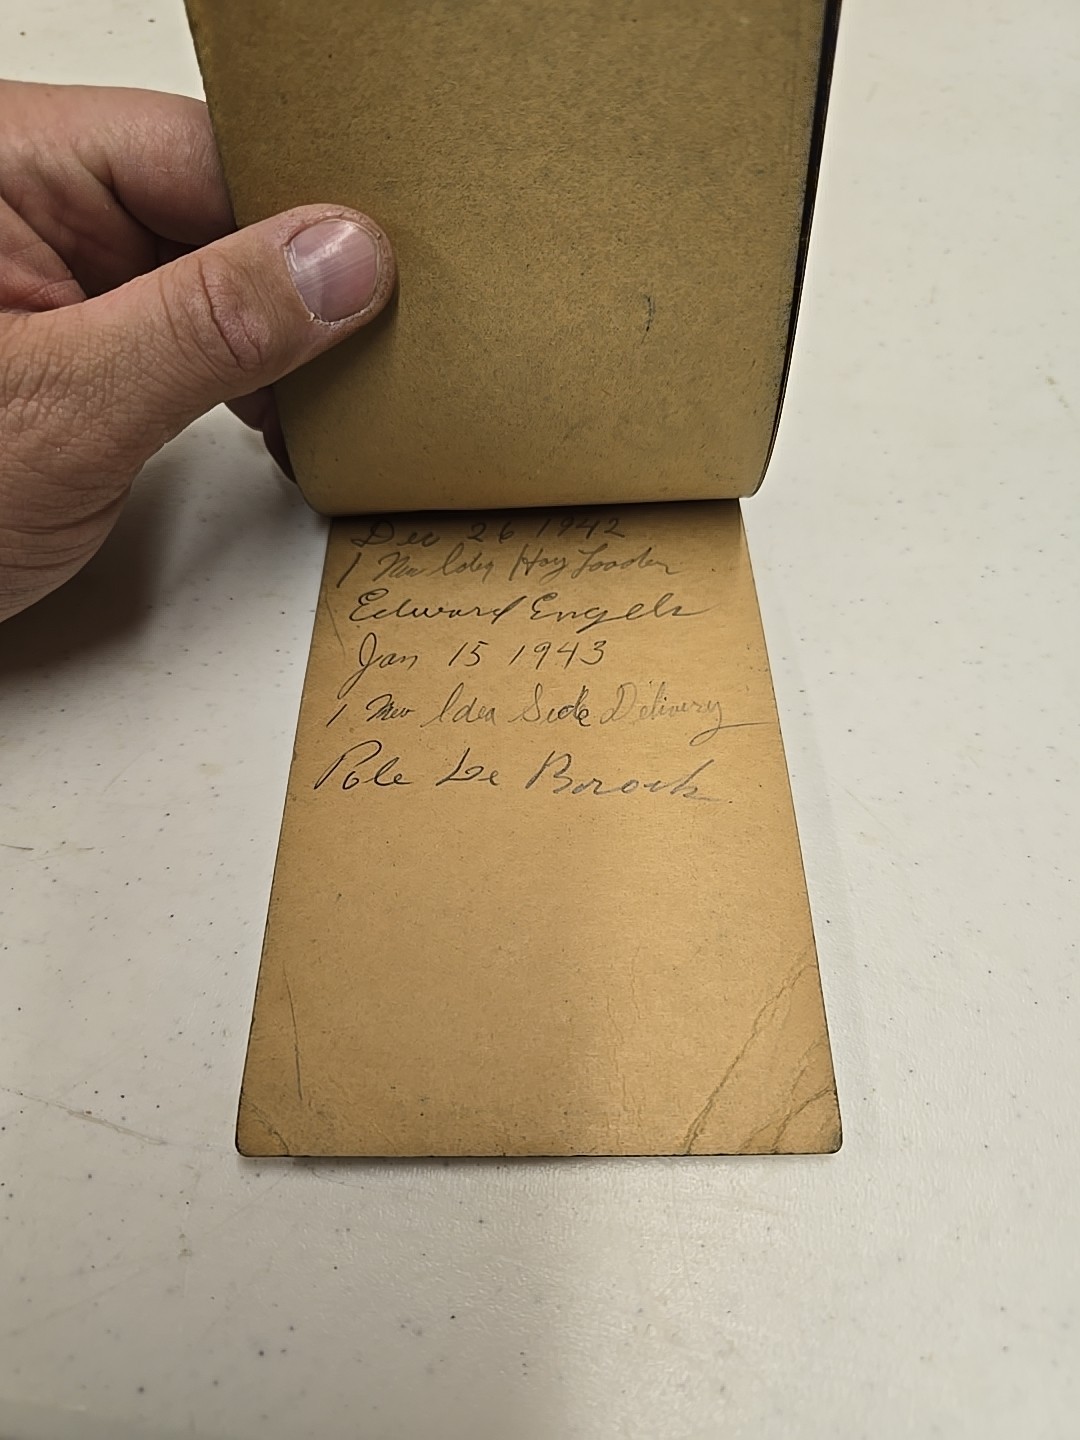 Dec 26 1942
1 New Idea Hay Loader
Edward Engels
Jan 15 1943
1 New Idea Side Delivery
Pole De Brock